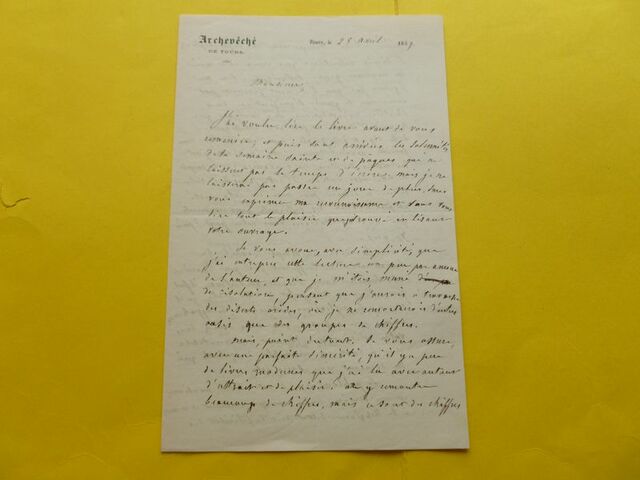 Archevêché
DE TOURS.
Tours, le 25 avril 1859.
Monsieur,
J'ai voulu lire le livre avant de vous
remercier; et puis sont arrivées les solennités
de la semaine sainte et de pâques, qui ne
laissent pas le temps d'écrire, mais je ne
laisserai pas passer un jour de plus, sans
vous exprimer ma reconnaissance et sans vous
dire tout le plaisir que j'ai trouvé en lisant
votre ouvrage.
Je vous avoue, avec simplicité, que
j'ai entrepris cette lecture un peu par amour
de l'auteur et que je m'étois muni
de résolution, pensant que j'aurois à traverser
des déserts arides, où je ne rencontrerois d'autres
oasis que des groupes de chiffres.
mais, point du tout. Je vous assure,
avec une parfaite sincérité, qu'il y a peu
de livres modernes que j'ai lu avec autant
d'attrait et de plaisir. on y rencontre
beaucoup de chiffres, mais ce sont des chiffres